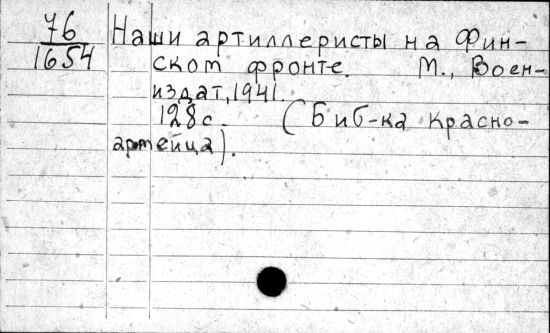 76 Наши артиллеристы на Фин-
1654 ском фронте. М., Воен-
издат, 1941.
128с. (Биб-ка красно-
армейца).